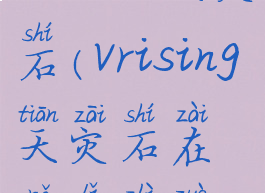 shí
石(Vrising
tiān zāi shí zài
天灾石在